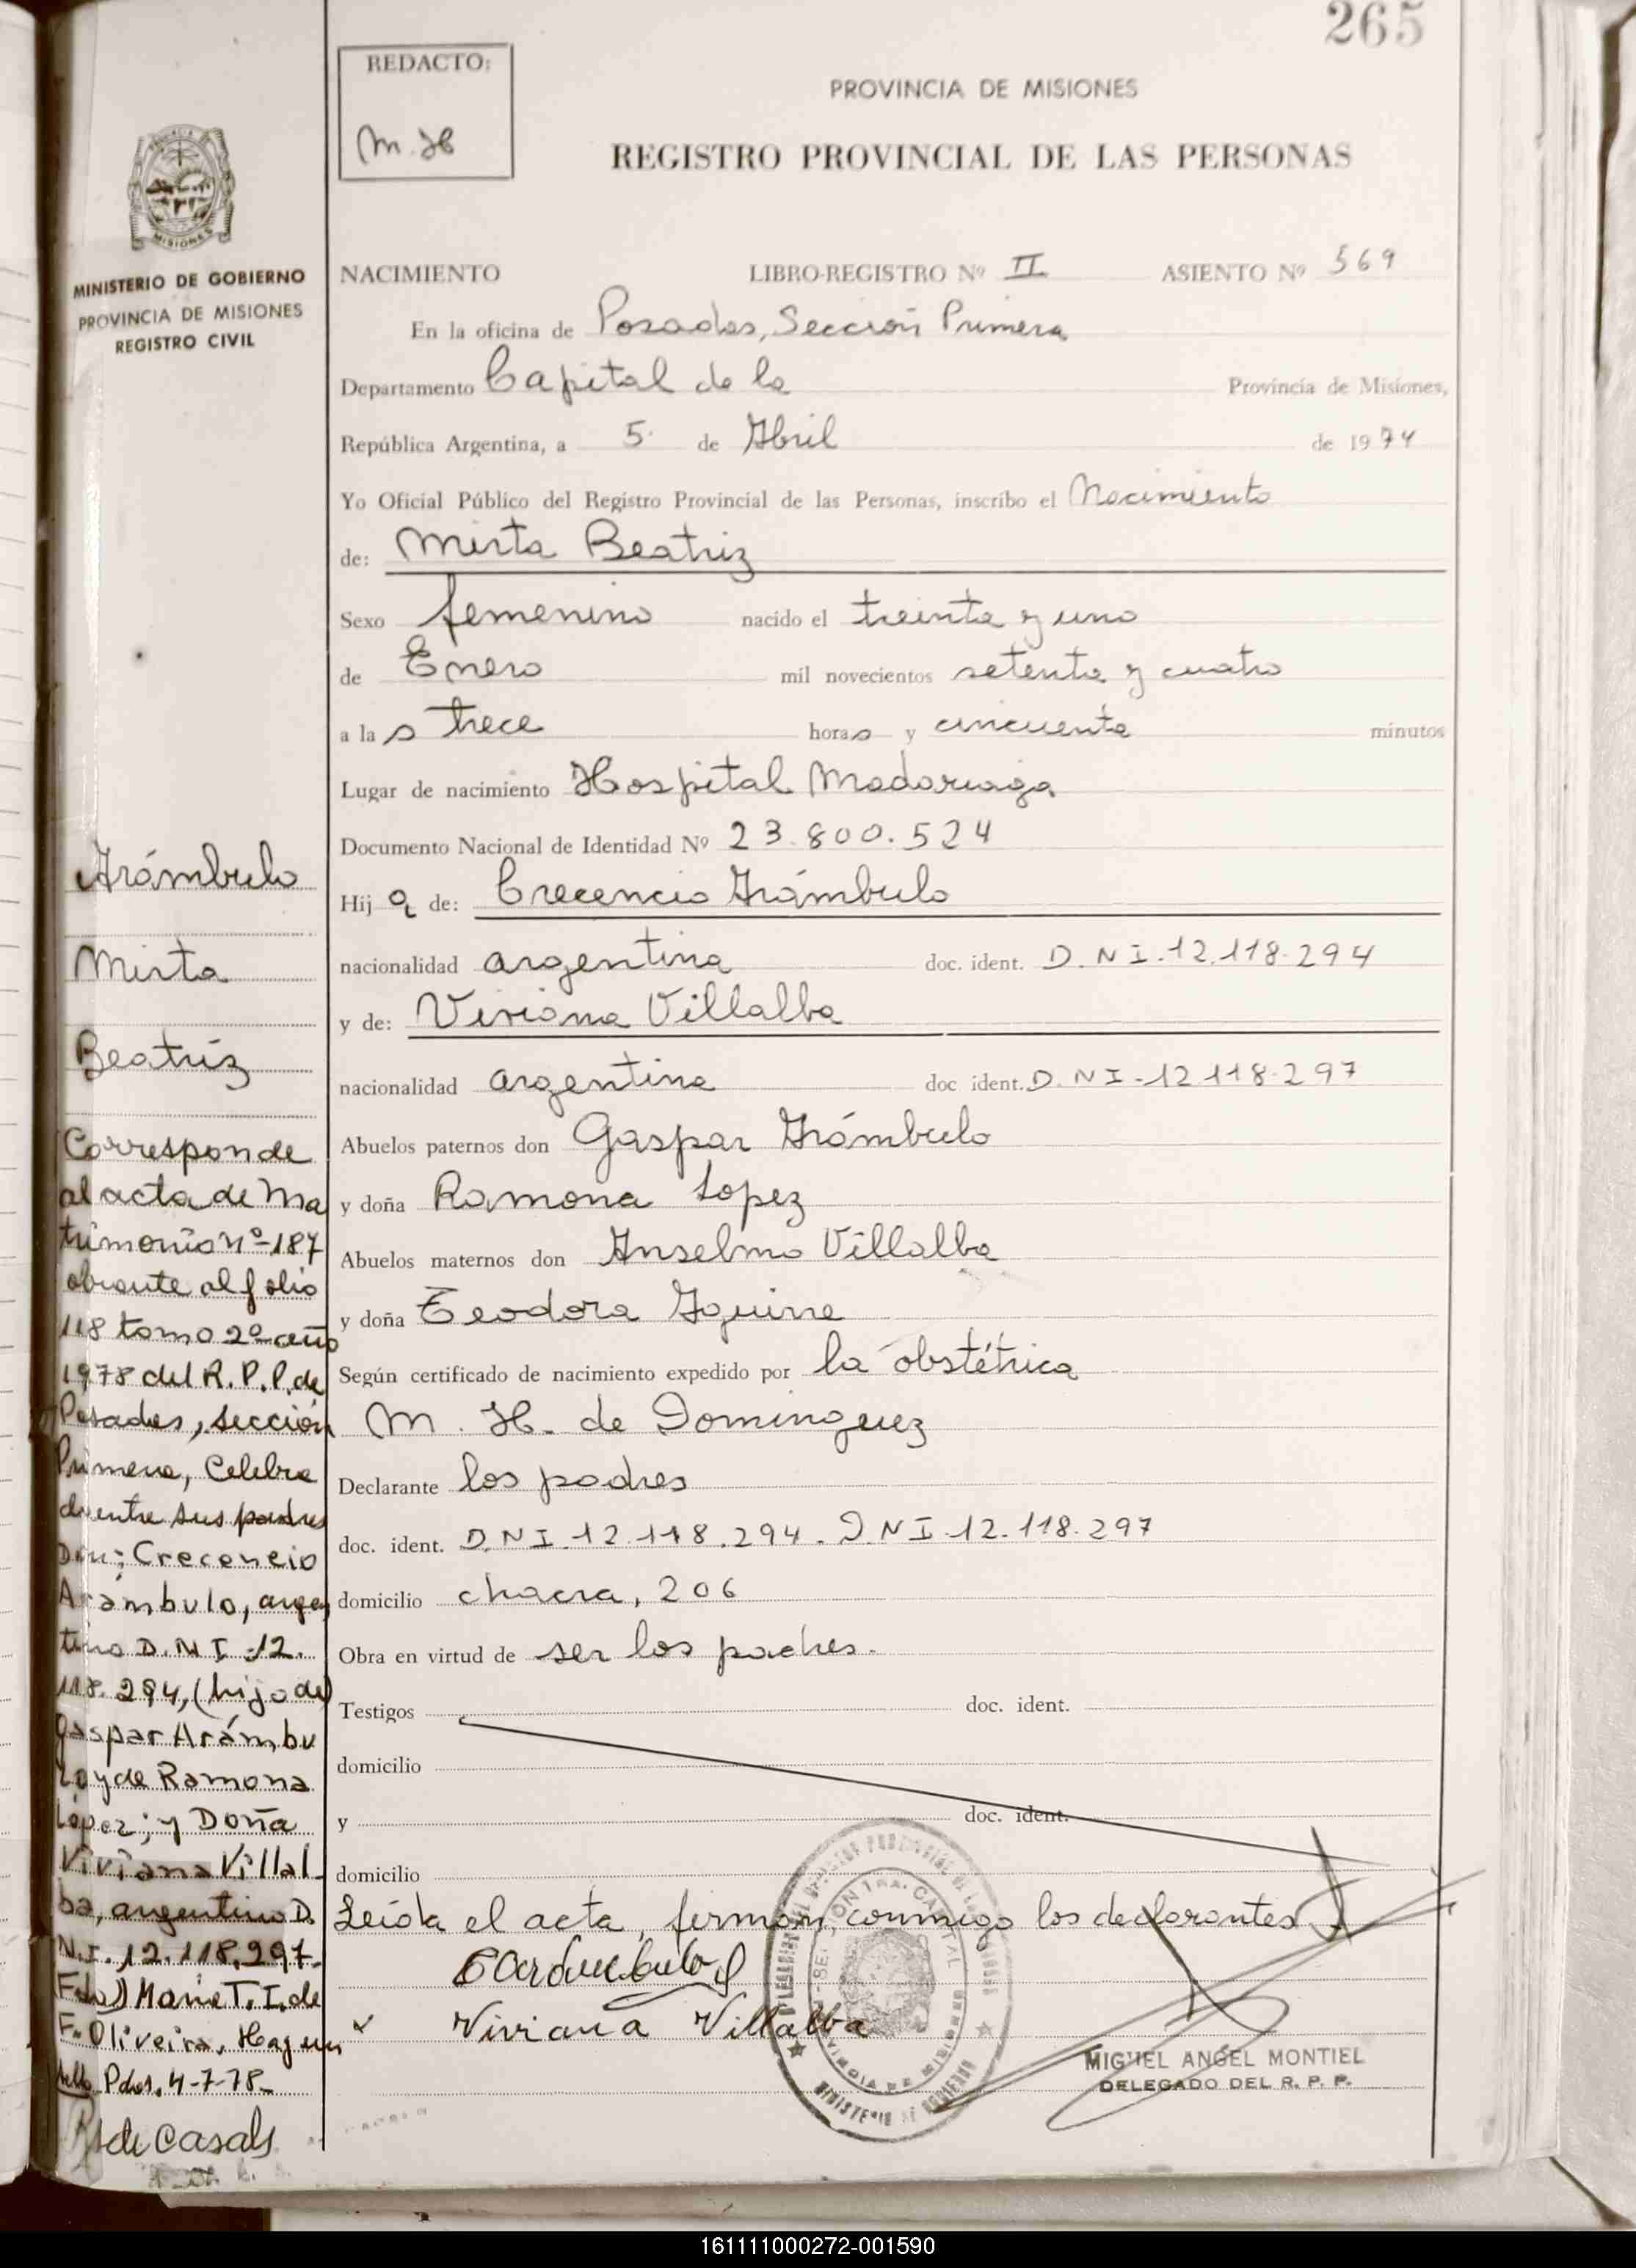 265
REDACTO:
M. H
PROVINCIA DE MISIONES
REGISTRO PROVINCIAL DE LAS PERSONAS
MISIONES
MINISTERIO DE GOBIERNO
PROVINCIA DE MISIONES
REGISTRO CIVIL
NACIMIENTO LIBRO-REGISTRO Nº II ASIENTO Nº 569
En la oficina de Posadas, Sección Primera
Departamento Capital de la Provincia de Misiones,
República Argentina, a 5 de Abril de 1974
Yo Oficial Público del Registro Provincial de las Personas, inscribo el Nacimiento
de: Mirta Beatriz
Sexo femenino nacido el treinta y uno
de Enero mil novecientos setenta y cuatro
a las trece horas y cincuenta minutos
Lugar de nacimiento Hospital Madariaga
Documento Nacional de Identidad Nº 23.800.524
Hija de: Crecencio Arámbulo
nacionalidad argentina doc. ident. D.N.I.12.118.294
y de: Viviana Villalba
nacionalidad argentina doc ident. D.N.I-12.118.297
Abuelos paternos don Gaspar Arámbulo
y doña Ramona Lopez
Abuelos maternos don Anselmo Villalba
y doña Teodora Aguirre
Según certificado de nacimiento expedido por la obstétrica
M. H. de Dominguez
Declarante los padres
doc. ident. D.N.I.12.118.294. D.N.I.12.118.297
domicilio chacra, 206
Obra en virtud de ser los padres.
Testigos doc. ident.
domicilio
y doc. ident.
domicilio
Leída el acta, firman conmigo los declarantes
Viviana Villalba
MIGUEL ANGEL MONTIEL
DELEGADO DEL R. P. P.
Arámbulo
Mirta
Beatriz
Corresponde
al acta de Ma
trimonio nº-187
obrante al folio
118 tomo 2º año
1978 del R. P. P. de
Posadas, sección
Primera, Celebra
do entre sus padres
Don: Crecencio
Arámbulo, argen
tino D.N.I-12.
118.294, (hijo de)
Gaspar Arámbu
lo y de Ramona
López; y Doña
Viviana Villal
ba, argentino D.
N.I.12.118.297-
Fdo) Maria T. I. de
F. Oliveira, Hay un
sello Pdas. 4-7-78-
de Casals
161111000272-001590